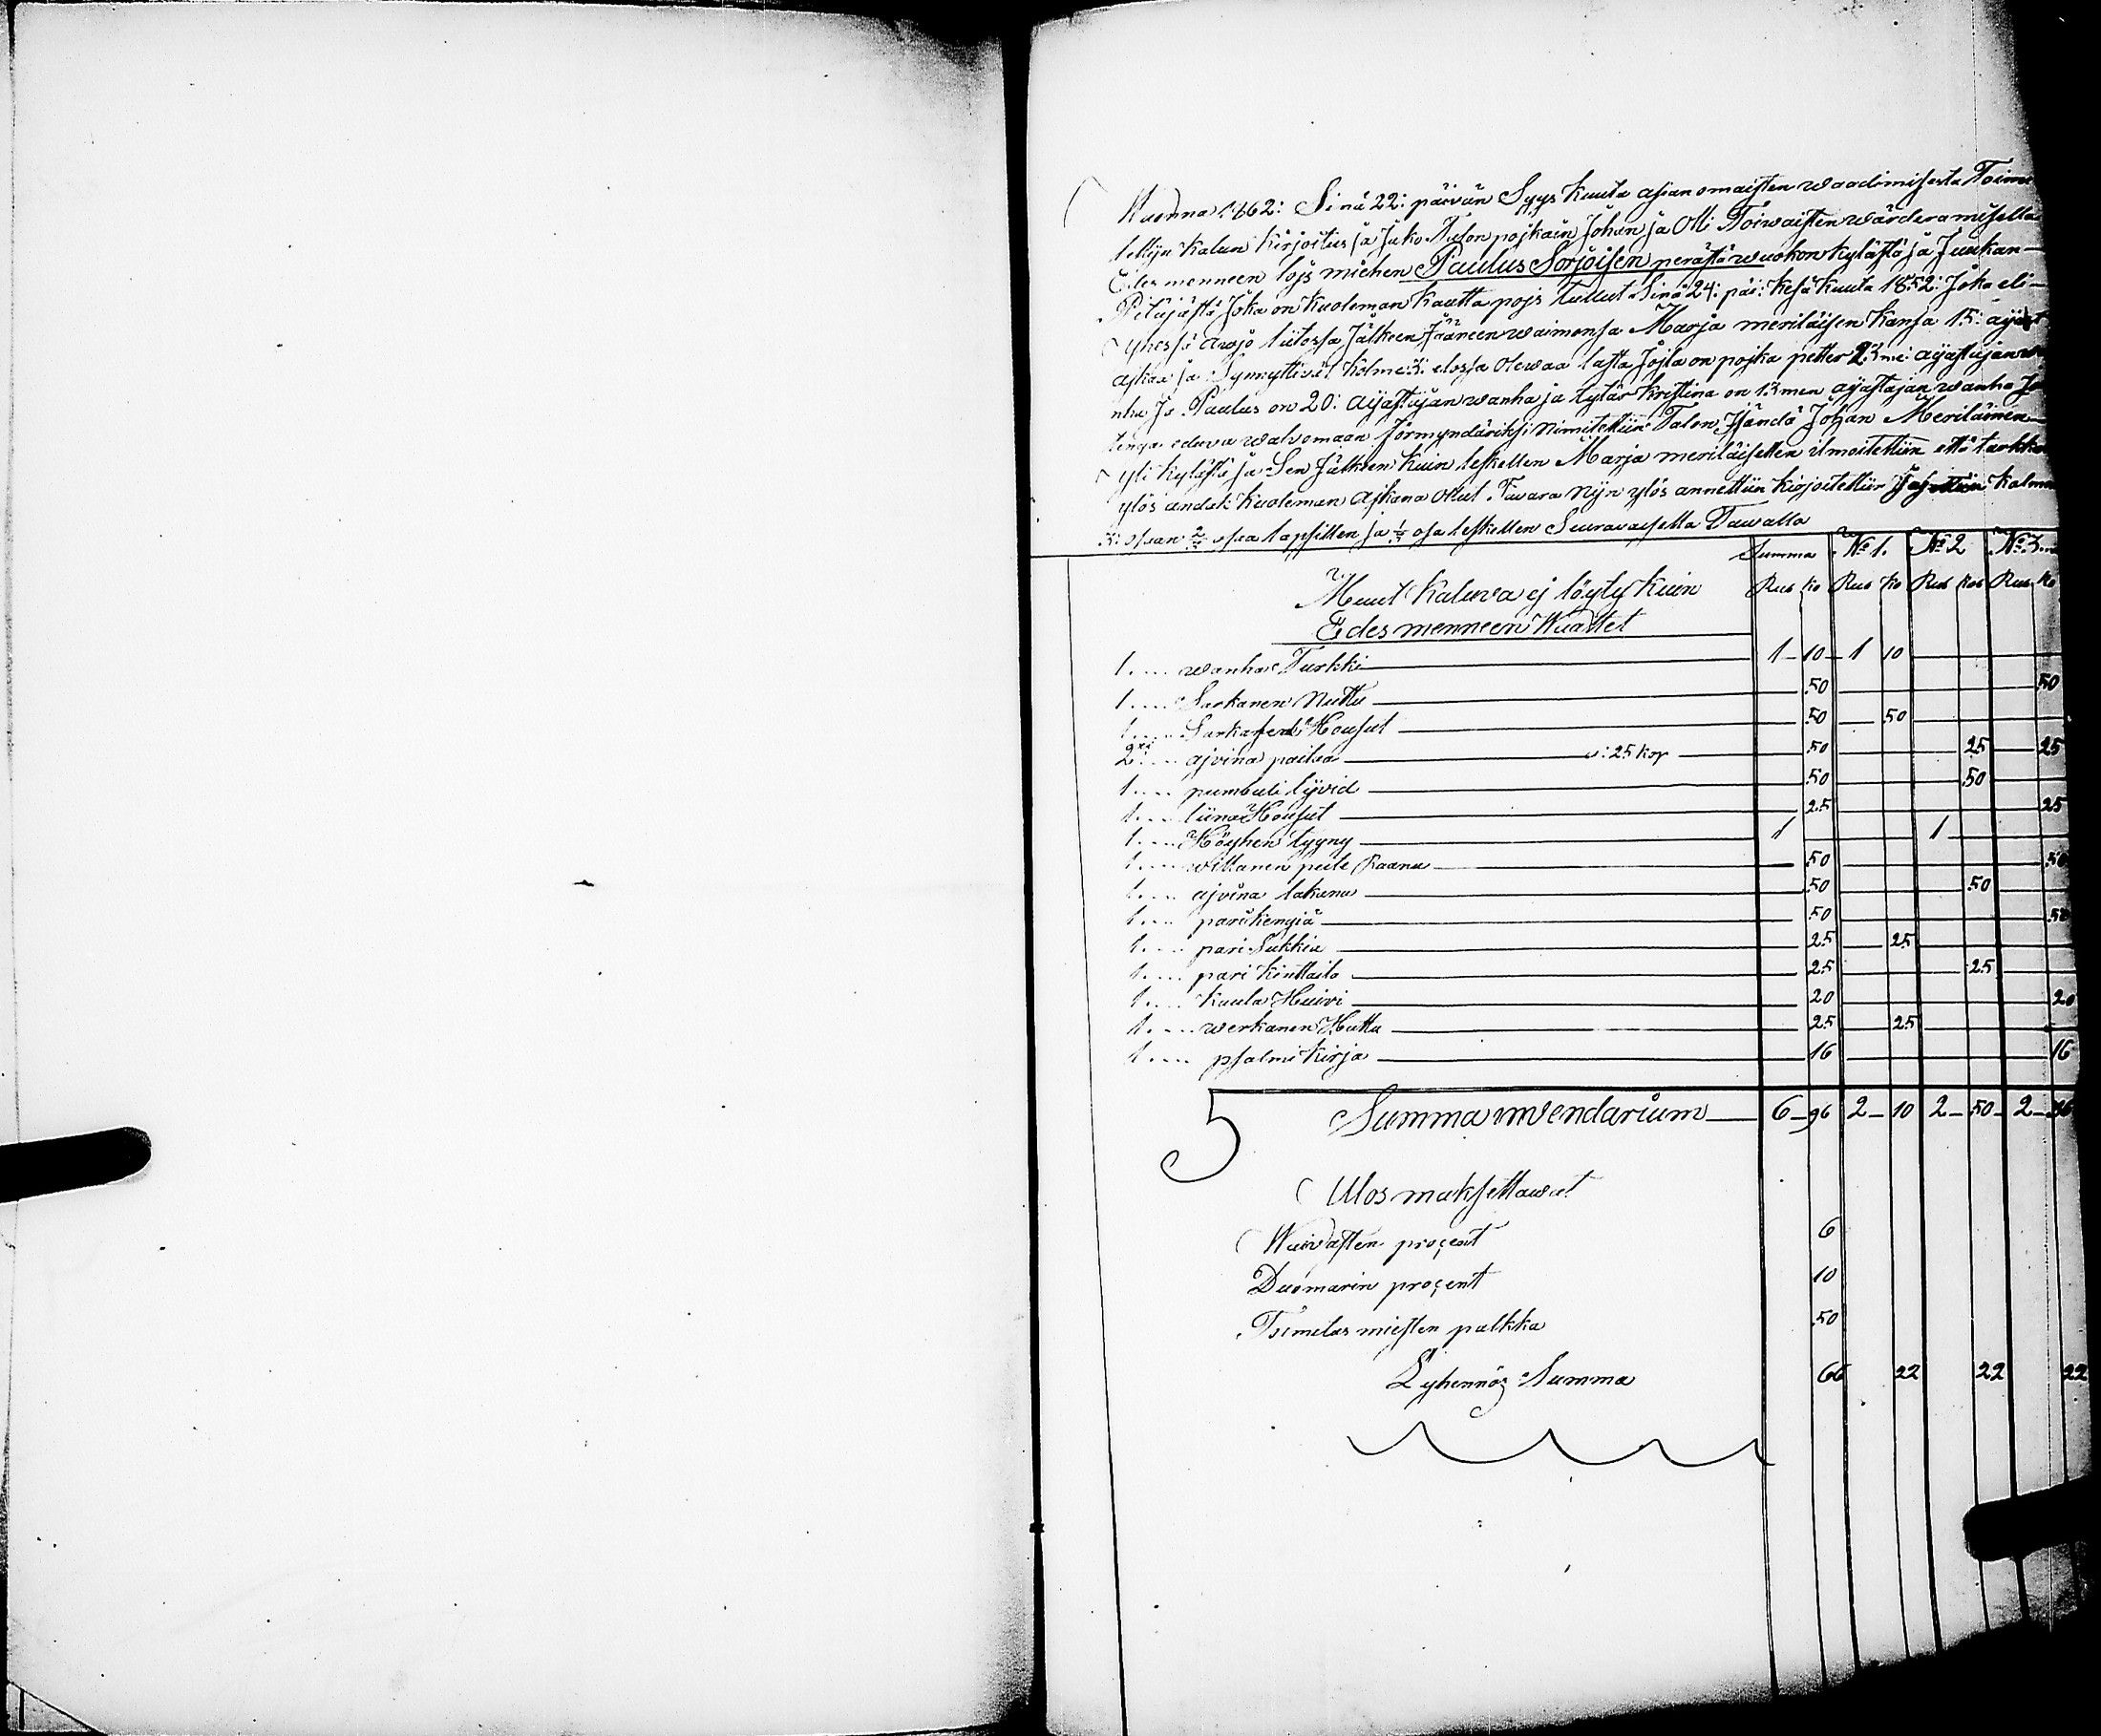 Wuonna 1862: Sinä 22: päivän Syys kuuta asian omaisten waadimisesta Toime
tettijn kalun kirjoitus ja Jako Talon pojkain Johan ja Olli Toiwaisten wärderamisella
Edes menneen lojs miehen Paulus Sorjoisen perästä wuokon kylästä ja Juukan
Pitäjästä Joka on kuoleman kautta pojs tullut Sinä 24: päi: kesä kuuta 1852: Joka eli
yhessä awjo liitossa Jälkeen Jääneen waimonsa Marja meriläisen kansa 15: ajast
ajkaa ja Synnyttivät kolme: 3: elossa olewaa lasta Jojsta on pojka petter 23me: ajastajan wa
nha Js Paulus on 20: ajastajan wanha ja tytär kristina on 13men ajastajan wanha Jo
tenga eduva walvomaan förmyndäriksi nimitettiin Talon Jsändä Johan Meriläinen
yli kylästä ja Sen Jälkeen kuin leskellen Marja meriläisellen ilmoitettiin että tarkka
ylös andak kuoleman ajkana ollut Tawara nijn ylös annettiin kirjoitettiin Ja kolme
3: osaan 2/3 osaa lapsillen ja 1/3 osa leskellen Seuravaisella Tawalla
Summa No 1. No 2 No 3.
Muut kaluva ej löyty kuin Rub ko Rub ko Rub kop Rub ko
Edes menneen Waattet
1 .... wanha Turkki 1 10 1 10
1 .... Sarkanen Nuttu 50 50
1 .... Sarkaset Housut 50 50
2 .... ajvina paitaa a: 25 kop 50 25 25
1 .... pumbuli lijvid 50 50
1 .... liina Housut 25 25
1 .... Höyhen tyyny 1 1
1 .... willanen peite Raanu 50 50
1 .... ajvina lakana 50 50
1 .... pari kengiä 50 50
1 .... pari Sukkia 25 25
1 .... pari kinttaita 25 25
1 .... kaula Huivi 20 20
1 .... werkanen Hattu 25 25
1 .... psalmi kirja 16 16
Summa invendarium 6 96 2 10 2 50 2 36
Ulos maksettawat
Waivasten proçent 6
Duomarin proçent 10
Toimitus miesten palkka 50
Lyhennös Summa 66 22 22 22